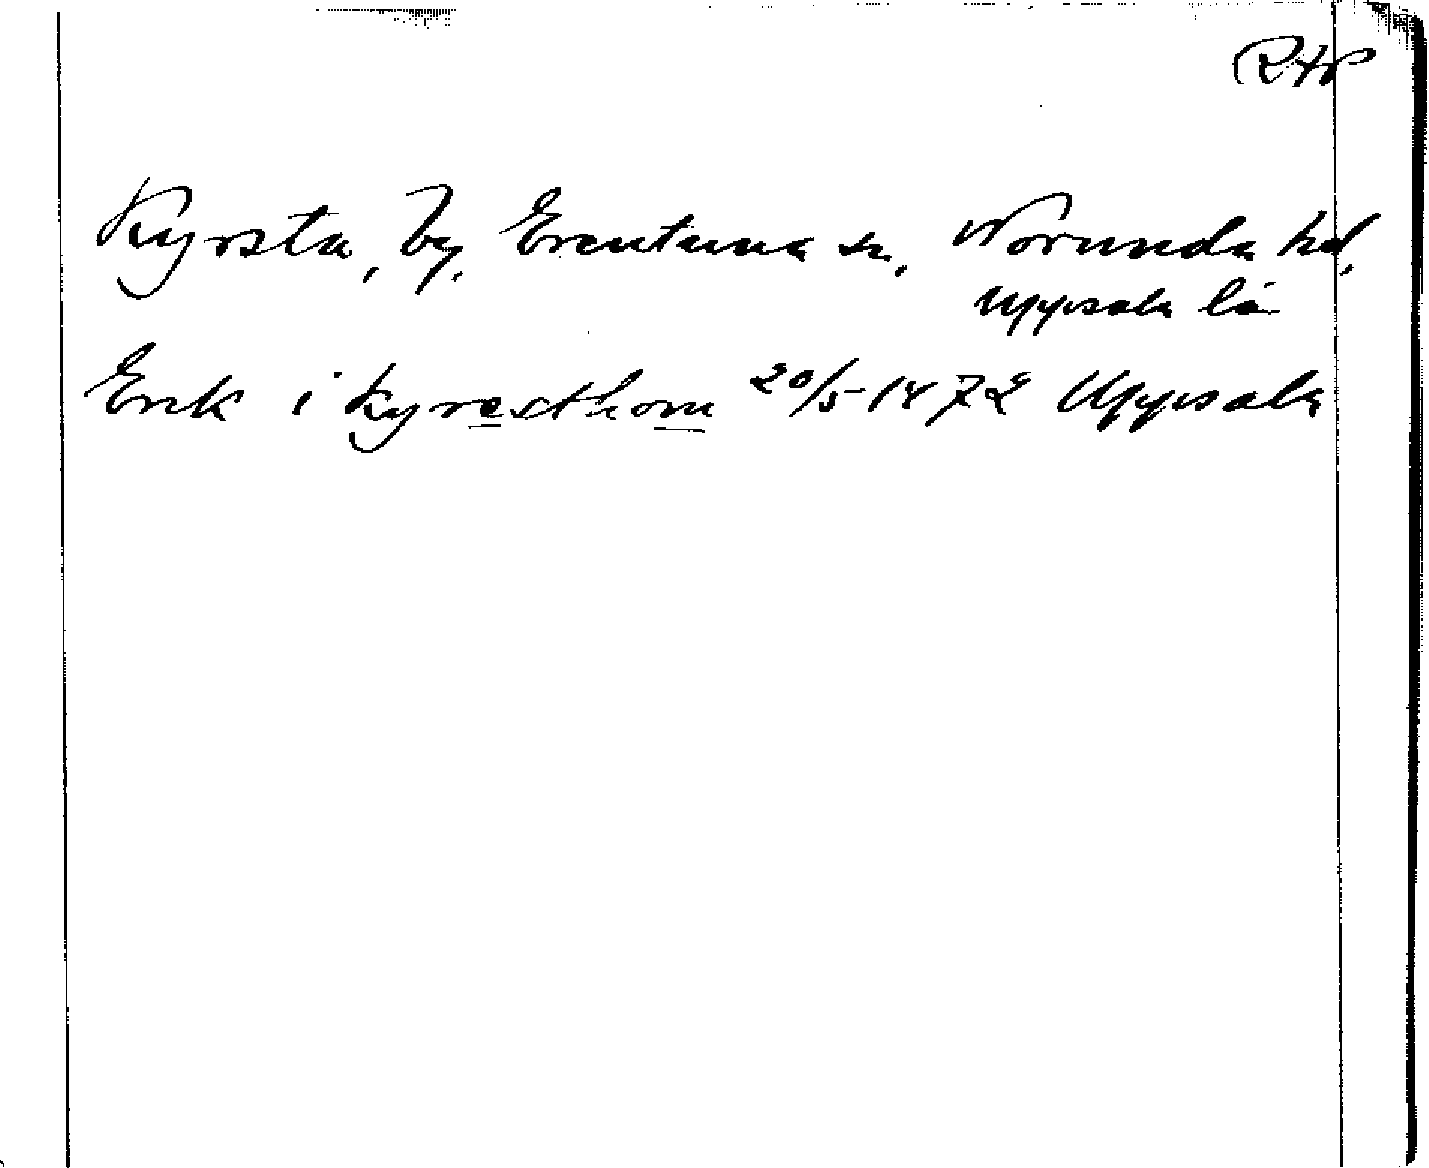 RAP
Kyrsta, by, Erentuna sn, Norunda hd,
Uppsala län
Erik i Kyresthom 20/5 1472 Uppsala